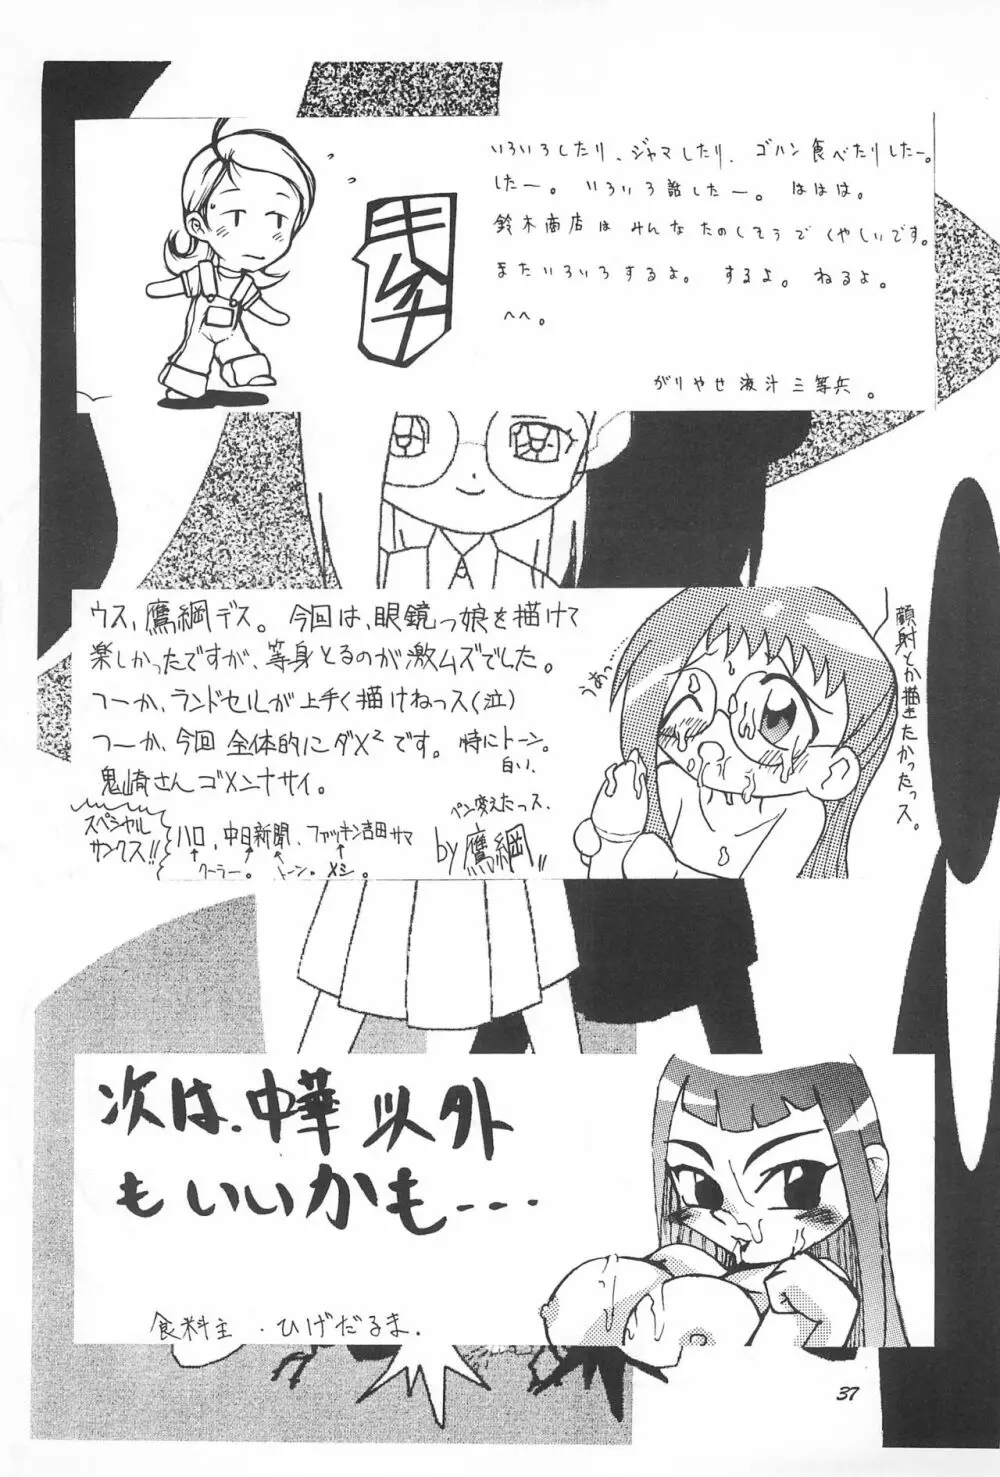 いろいろしたり、ジャマしたり、ゴハン食べたりしたー。
したー。いろいろ話したー。ははは。
鈴木商店はみんなたのしそうでくやしいです。
またいろいろするよ。するよ。ねるよ。
へへ。
がりやせ液汁三等兵。
キムチ
ウス、鷹綱デス。今回は、眼鏡っ娘を描けて
楽しかったですが、等身とるのが激ムズでした。
つーか、ランドセルが上手く描けねっス(泣)
つーか、今回全体的にダメ²です。特にトーン。
白い、
鬼崎さんゴメンナサイ。
ペン変えたっス。
by鷹綱
スペシャル
サンクス!!
ハロ、中日新聞、ファッキン吉田サマ
クーラー。トーン。メシ。
うあっ…
顔射とか描きたかったっス。
次は、中華以外
もいいかも---
食料主・ひげだるま.
37